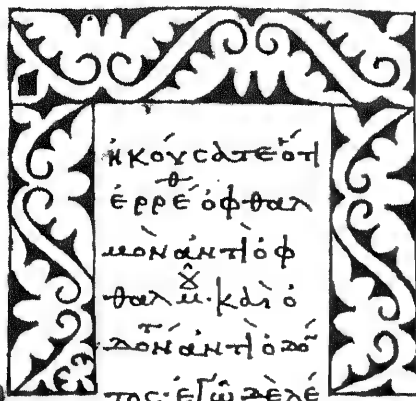 ἠκούσατε ὅτι
ἐρρέθ ὀφθαλ
μὸν ἀντὶ ὀφ
θαλμȣ͂· καὶ ὀ
δόντ ἀντὶ ὀδό̄
τος· ἐγὼ δὲ λέ